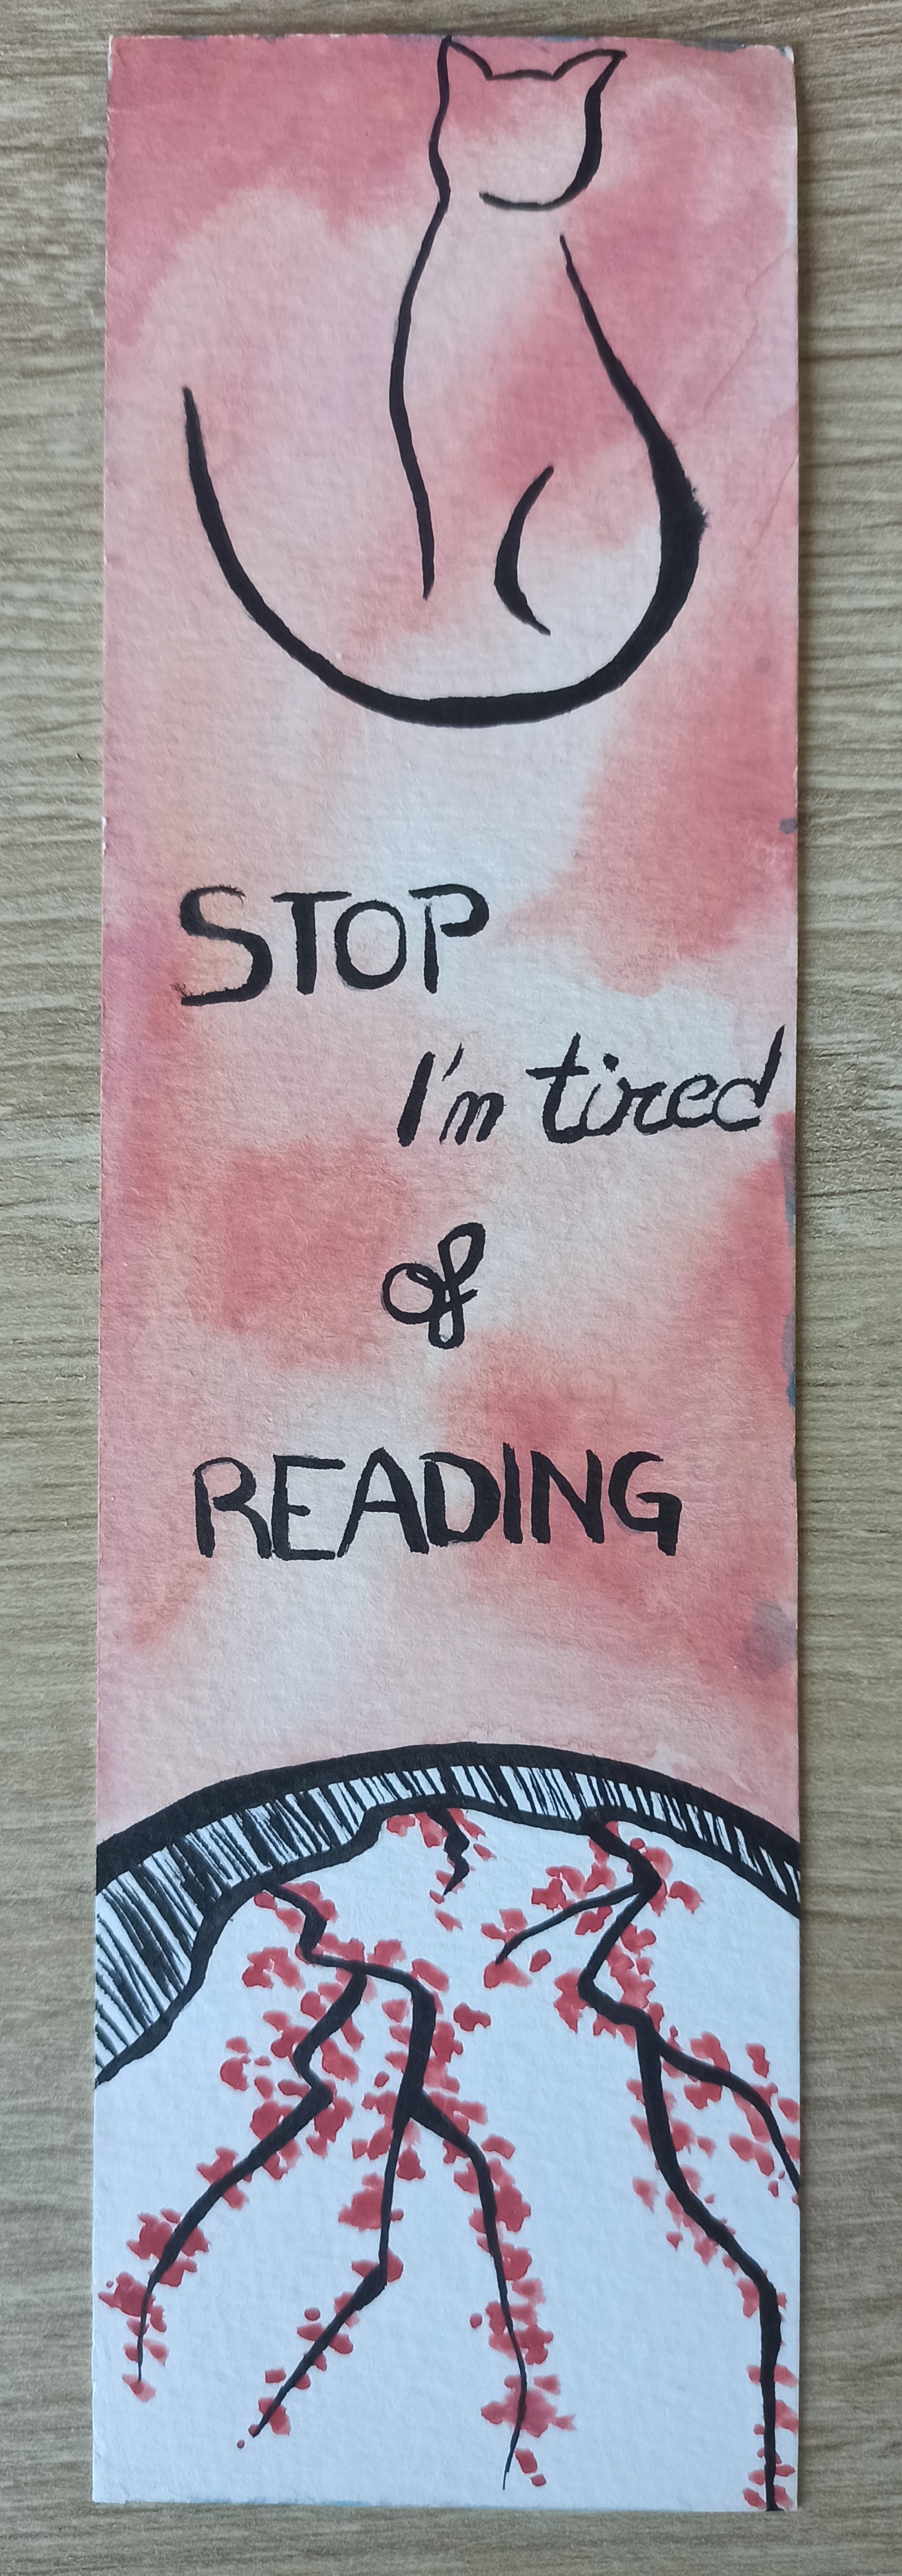 STOP
I'm tired
of
READING